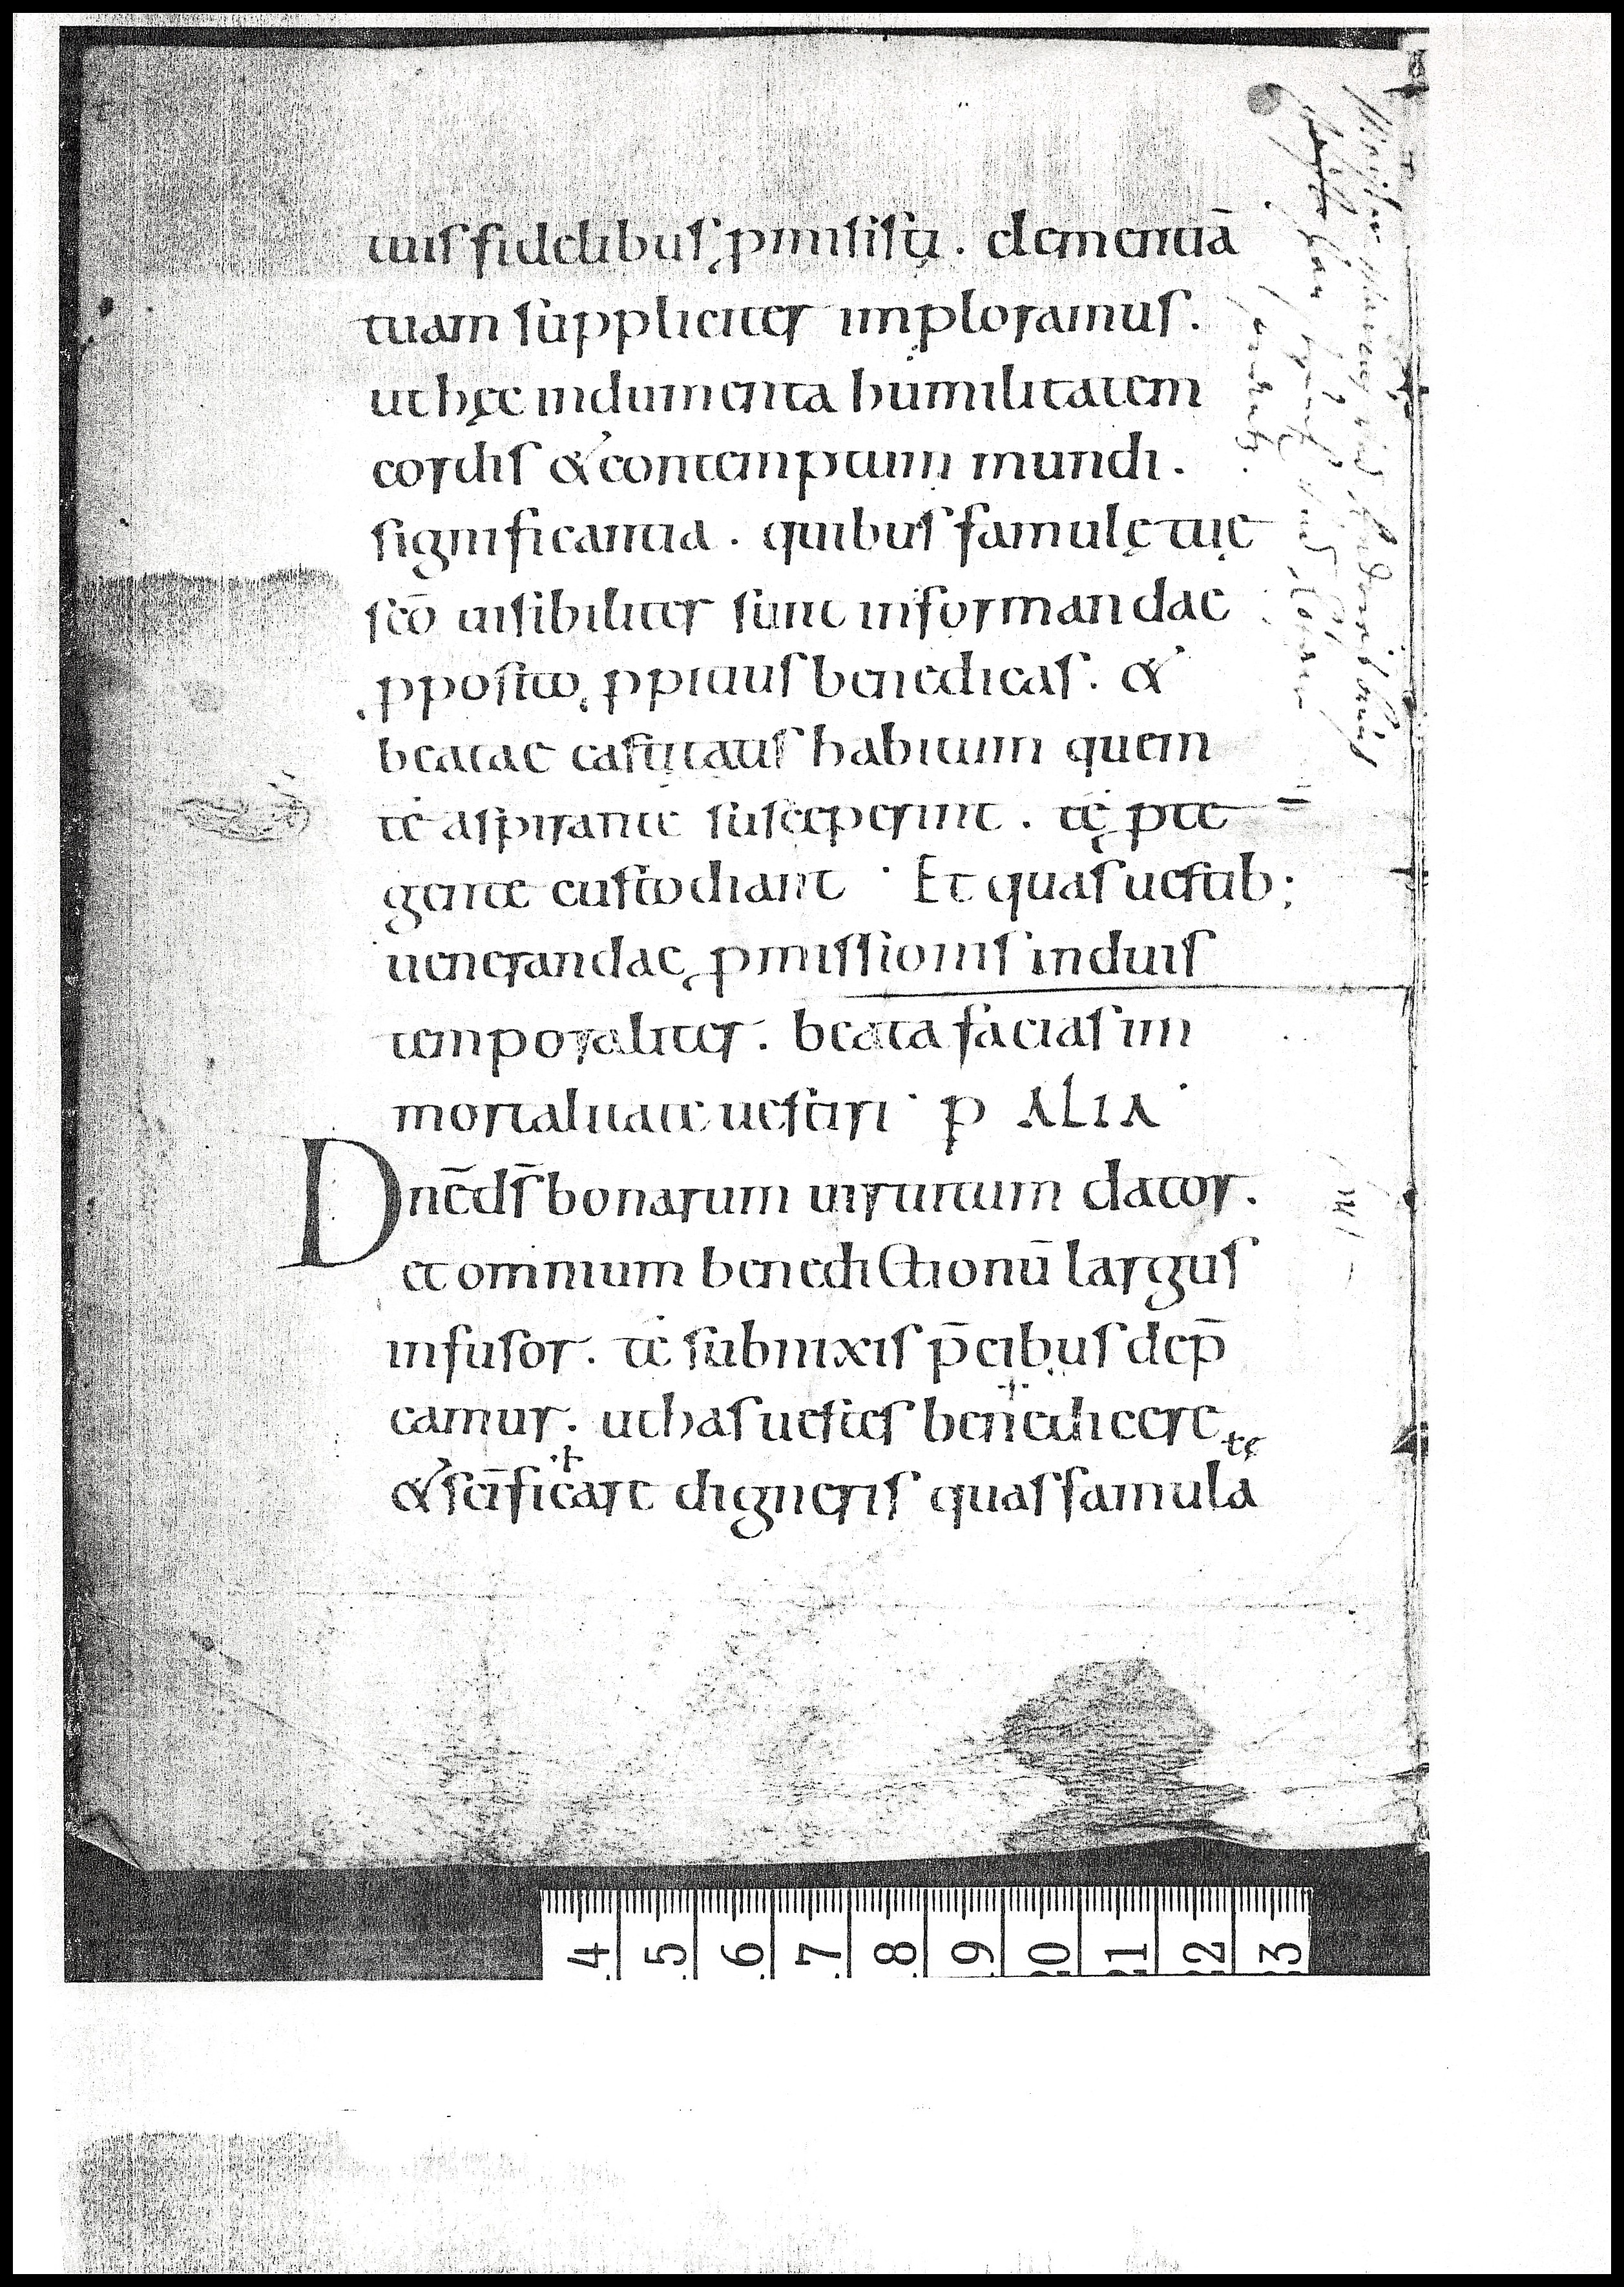 tuis fidelibus ꝓmisisti . clementiā
tuam suppliciter imploramus .
ut hęc indumenta humilitatem
cordis & contemptum mundi .
significantia . quibus famulę tuę
sc̄o uisibiliter sunt informandae
ꝓposito ꝓpitius benedicas . &
beatae castitatis habitum quem
te aspirante susceperint . te ꝓte
gente custodiant · Et quas uestib;
uenerandae ꝓmissionis induis
temporaliter . beata facias im
mortalitate uestiri · p ALIA ·
Dnēds̄ bonarum uirtutum dator .
et omnium benedictionū largus
infusor . te subnixis p̄cibus dep̄
camur . ut has uestes benedicere
& sc̄ificare digneris quas famulę tę
4 5 6 7 8 9 20 21 22 23